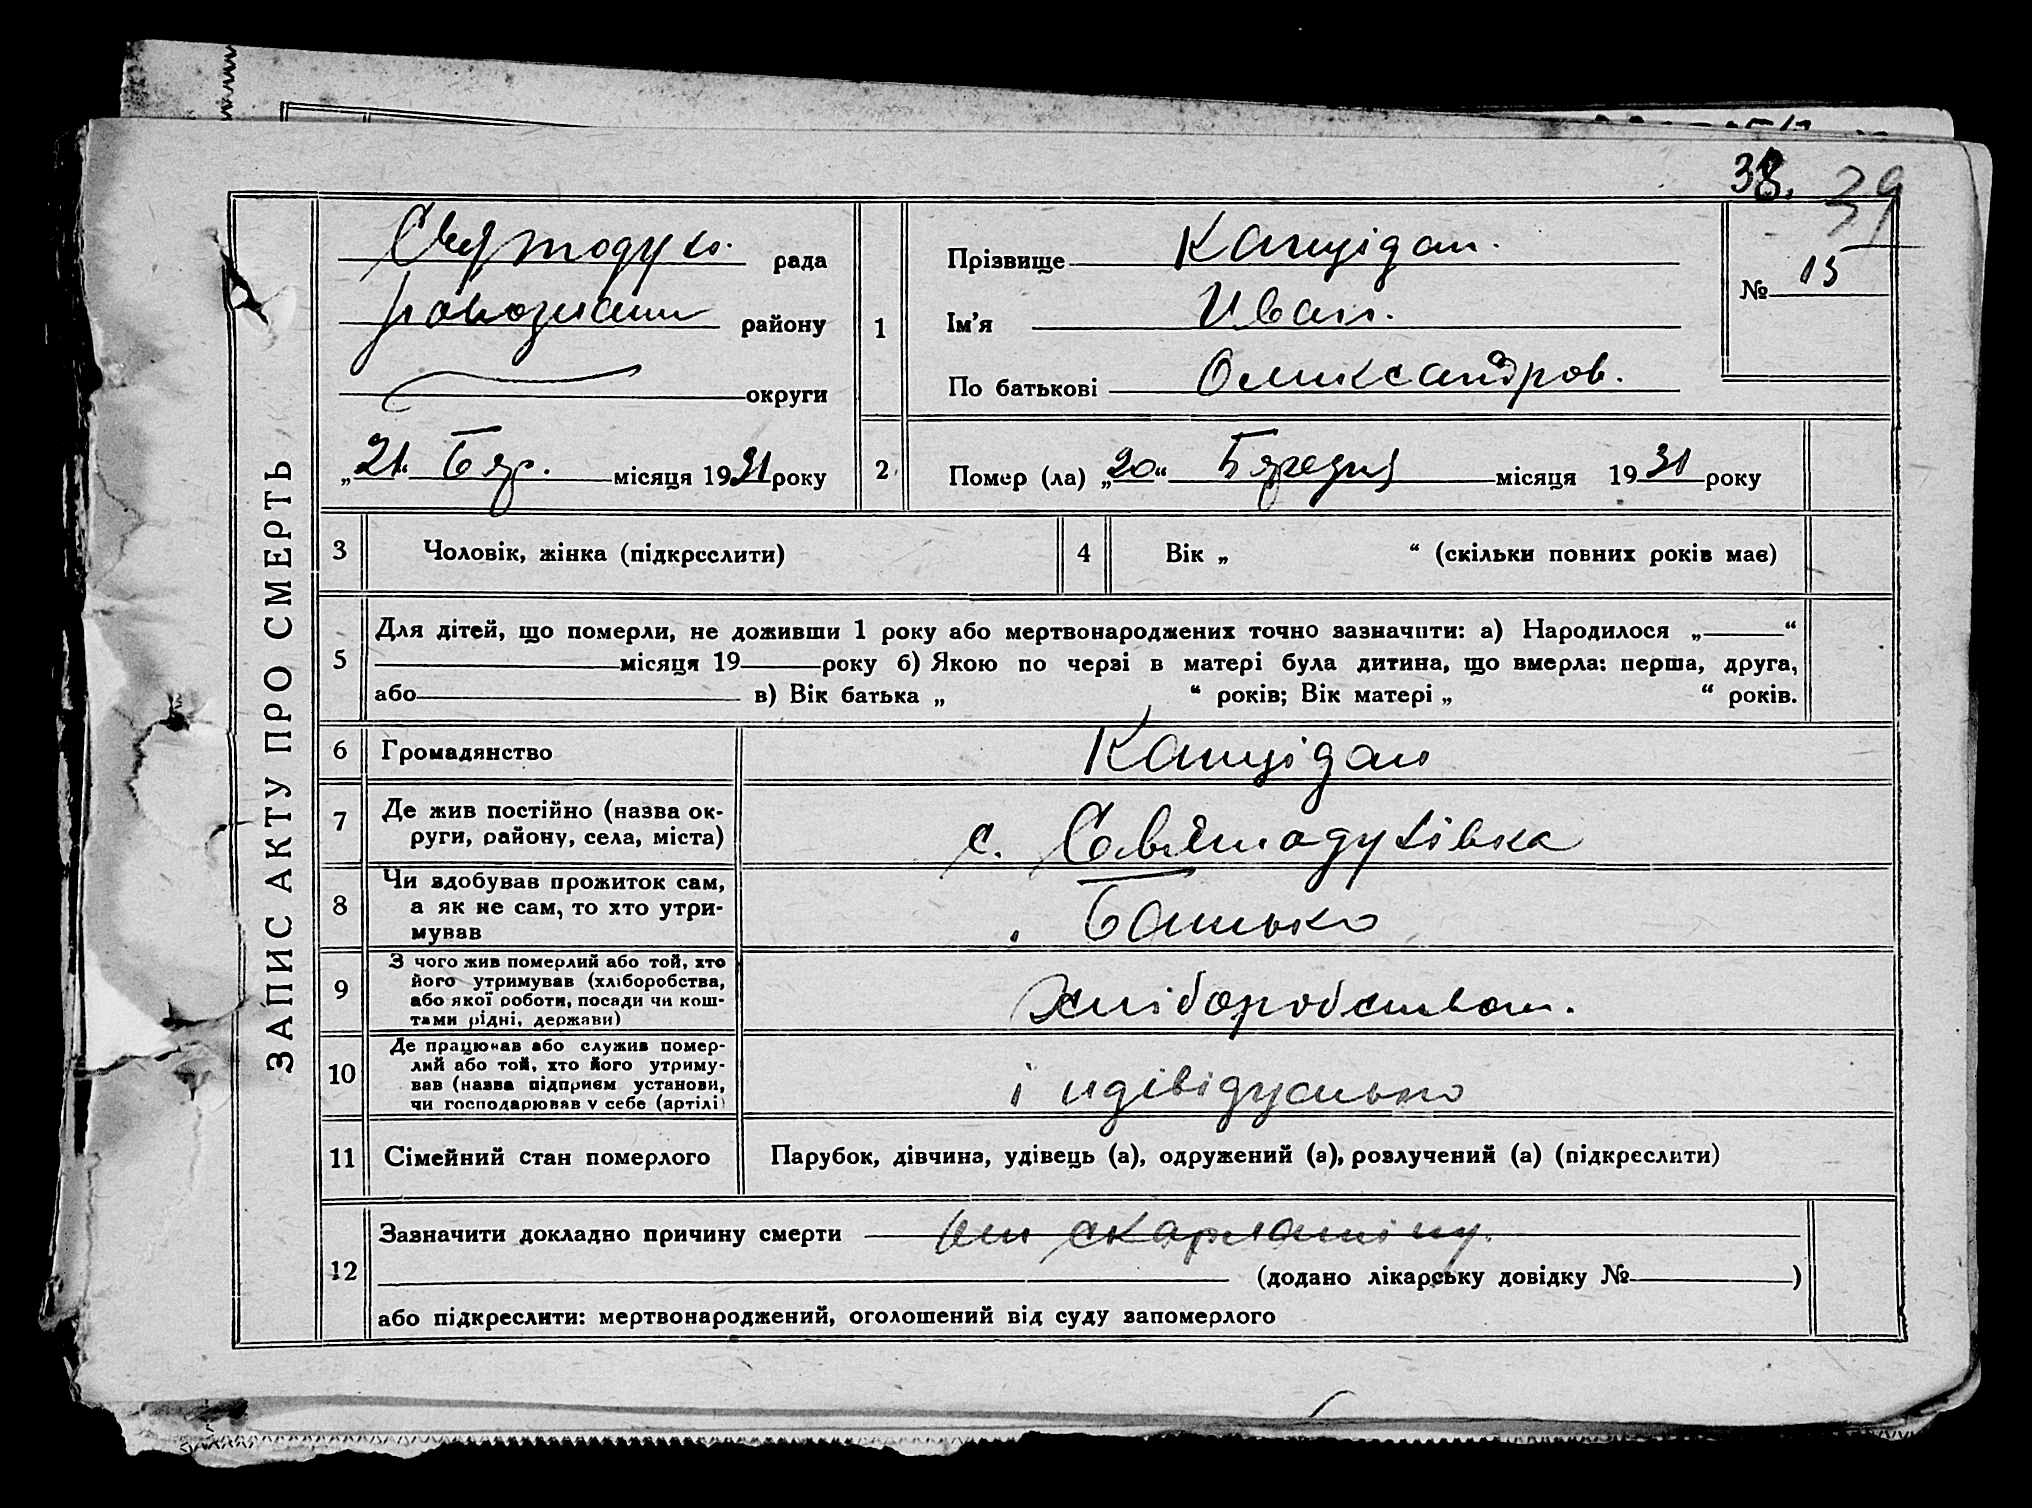 38. 39
ЗАПИС АКТУ ПРО СМЕРТЬ
рада
району
округи
„21“ Бер. місяця 1931 року
1
Прізвище Капцідан.
Ім'я Иван.
По батькові Олександров.
№ 15
2
Помер (ла) „20“ місяця 1931 року
3 Чоловік, жінка (підкреслити)
4 Вік „ “ (скільки повних років має)
5 Для дітей, що померли, не доживши 1 року або мертвонароджених точно зазначити: а) Народилося „ “
місяця 19 року б) Якою по черзі в матері була дитина, що вмерла: перша, друга,
або в) Вік батька „ “ років; Вік матері „ “ років.
6 Громадянство Капцідан
7 Де жив постійно (назва ок-
руги, району, села, міста) с. Святодухівка
8 Чи здобував прожиток сам,
а як не сам, то хто утри-
мував Батько
9 З чого жив померлий або той, хто
його утримував (хліборобства,
або якої роботи, посади чи кош-
тами рідні, держави) Хліборобством.
10 Де працював або служив помер-
лий або той, хто його утриму-
вав (назва підприєм установи,
чи господарював у себе (артілі) індівідуально
11 Сімейний стан померлого Парубок, дівчина, удівець (а), одружений (а), розлучений (а) (підкреслити)
12 Зазначити докладно причину смерти от скарлатіну.
(додано лікарську довідку № )
або підкреслити: мертвонароджений, оголошений від суду запомерлого